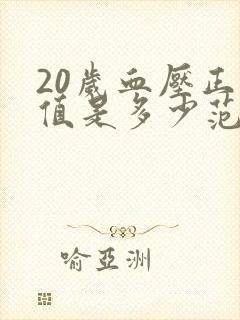 20歲血壓正
值是多少范
喻亞洲